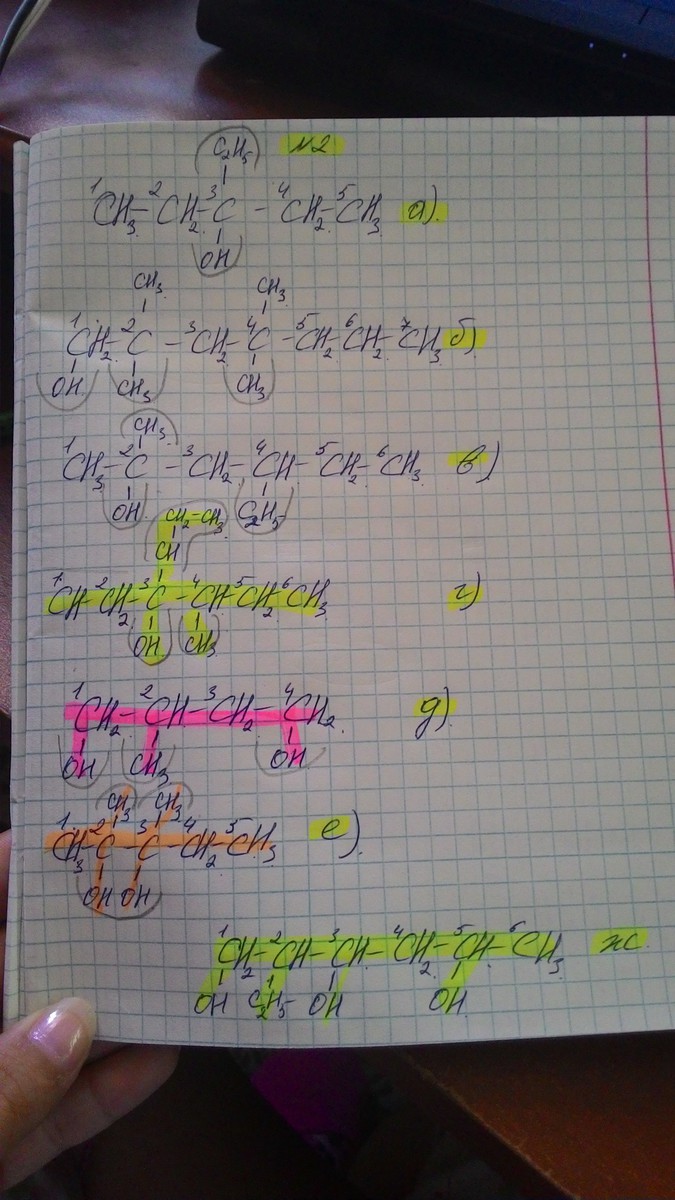 C₂H₅ №2
¹CH₃-²CH₂-³C-⁴CH₂-⁵CH₃ а).
OH
CH₃ CH₃
¹CH₂-²C-³CH₂-⁴C-⁵CH₂-⁶CH₂-⁷CH₃ б)
OH CH₃ CH₃
CH₃
¹CH₃-²C-³CH₂-⁴CH-⁵CH₂-⁶CH₃ в)
OH C₂H₅
CH₂-CH₃
CH
¹CH-²CH₂-³C-⁴CH-⁵CH₂-⁶CH₃ г)
OH CH₃
¹CH₂-²CH-³CH₂-⁴CH₂ д)
OH CH₃ OH
CH₃ CH₃
¹CH₃-²C-³C-⁴CH₂-⁵CH₃ е).
OH OH
¹CH₂-²CH-³CH-⁴CH₂-⁵CH-⁶CH₃ ж.
OH C₂H₅ OH OH